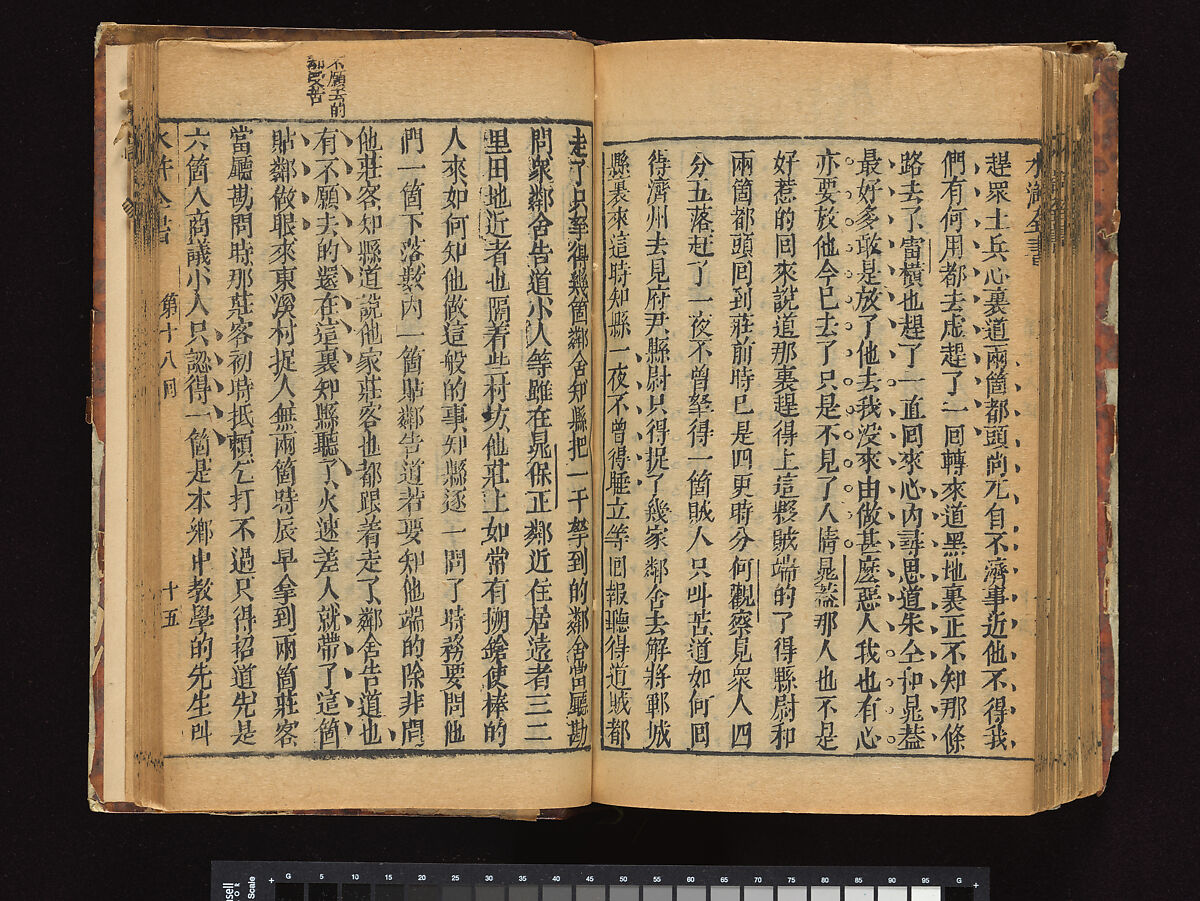 水滸全書
趕眾土兵心裏道兩箇都頭尚兀自不濟事近他不得我
們有何用都去虛趕了一回轉來道黑地裏正不知那條
路去了雷橫也趕了一直回來心內尋思道朱仝和晁葢
最好多敢是放了他去我没來由做甚麽惡人我也有心
亦要放他今已去了只是不見了人情晁葢那人也不是
好惹的回來說道那裏趕得上這夥賊端的了得縣尉和
兩箇都頭回到莊前時已是四更時分何觀察見眾人四
分五落赶了一夜不曾拏得一箇賊人只叫苦道如何回
得濟州去見府尹縣尉只得捉了幾家鄰舍去解將鄆城
縣裏來這時知縣一夜不曾得睡立等回報聽得道賊都
走了只拏得幾箇鄰舍知縣把一干拏到的鄰舍當廳勘
問眾鄰舍告道小人等雖在晁保正鄰近住居遠者三二
里田地近者也隔着些村坊他莊上如常有搠鎗使棒的
人來如何知他做這般的事知縣逐一問了時務要問他
門一箇下落數內一箇貼鄰告道若要知他端的除非問
他莊客知縣道說他家莊客也都跟着走了鄰舍告道也
有不願去的還在這裏知縣聽了火速差人就帶了這箇
貼鄰做眼來東溪村捉人無兩箇時辰早拿到兩箇莊客
當廳勘問時那莊客初時抵賴乞打不過只得招道先是
六箇人商議小人只認得一箇是本鄉中教學的先生叫
不願去的
水滸全書 第十八回 十五